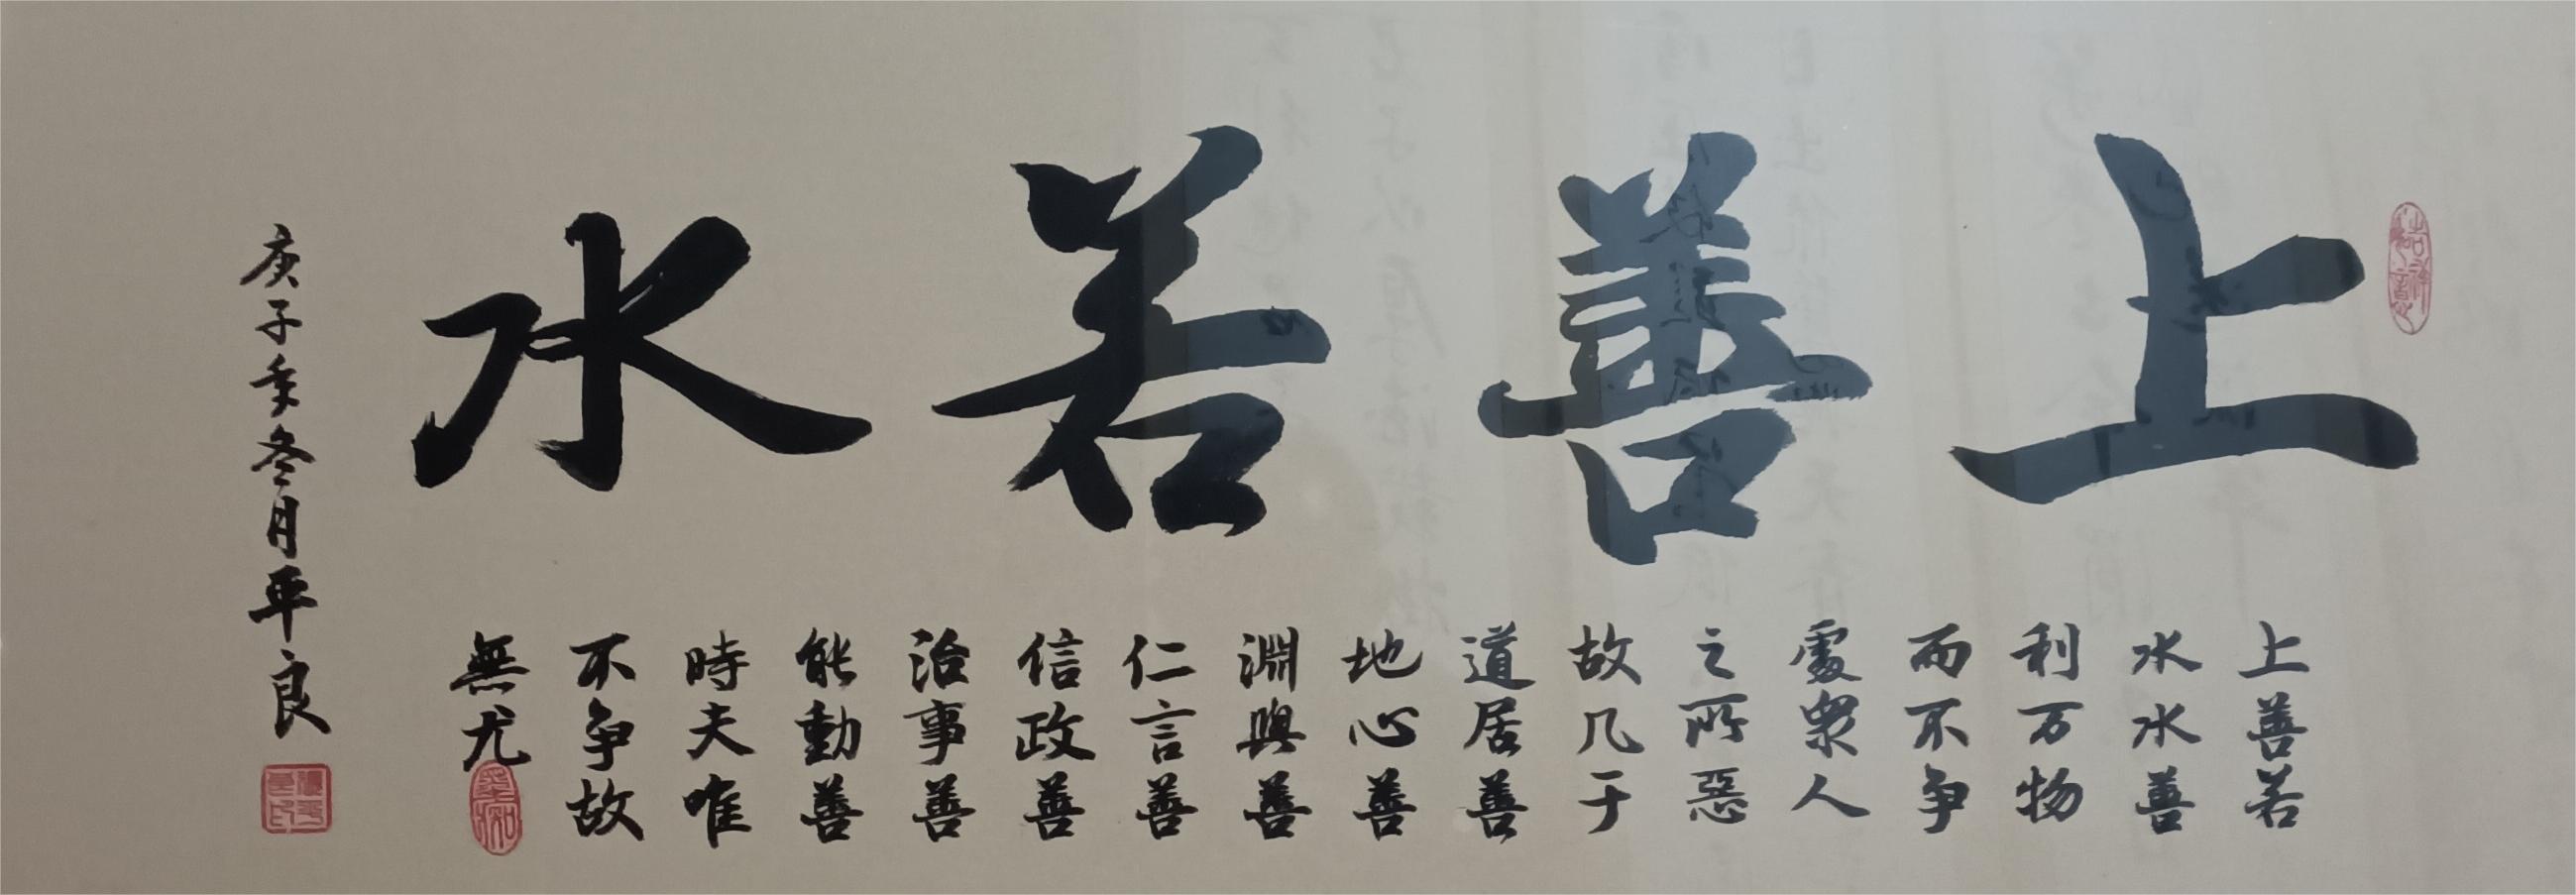 上善若水
上善若
水水善
利万物
而不争
處衆人
之所惡
故几于
道居善
地心善
淵與善
仁言善
信政善
治事善
能動善
時夫唯
不争故
無尤
庚子年冬月平良